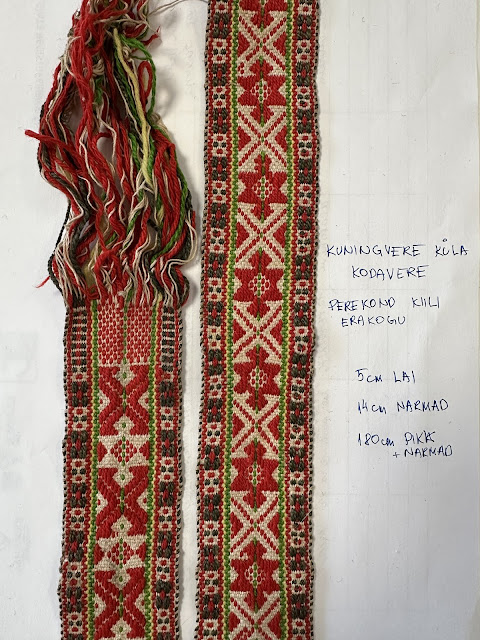 KUNINGVERE KÜLA
KODAVERE
PEREKOND KIILI
ERAKOGU
5cm LAI
14cm NARMAD
180cm PIKK
+ NARMAD